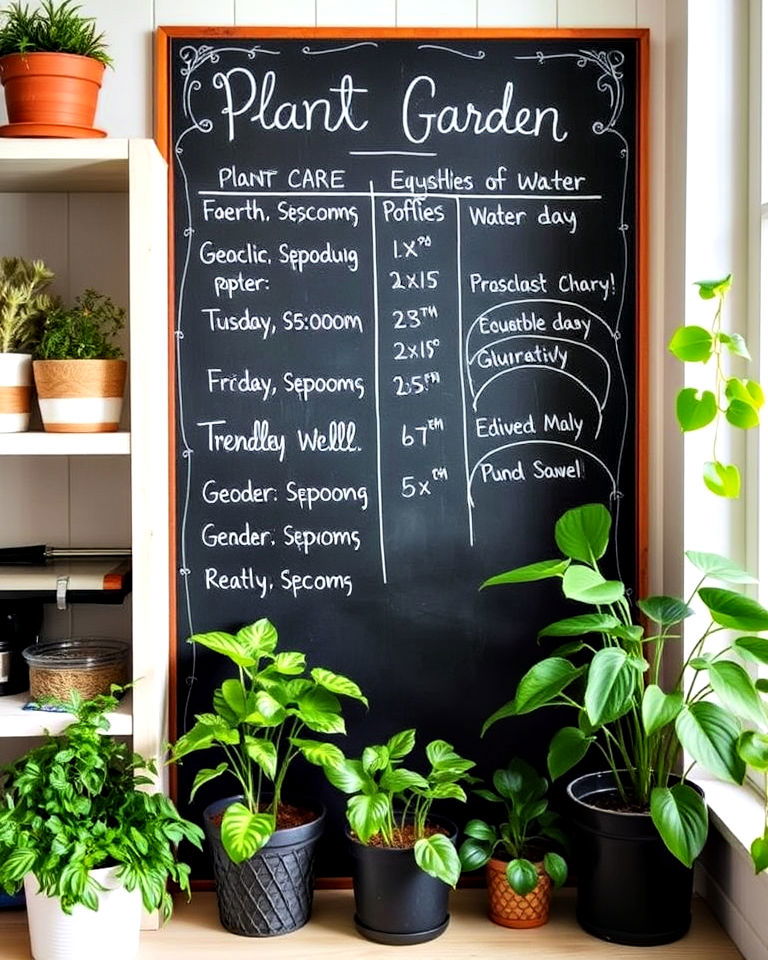 Plant Garden
PLANT CARE Eqysthies of Water
Faerth, Sescoms Poffies Water day
Geoclic, Sepoduig 1.X
ppter: 2x15 Prosclast Chary!
Tusday, S5:000m 23TH Eoustble day
2x15° Gluırativly
Friday, Sepooms 2:5
Trendley Welll. 67 Edived Maly
Geoder: Sepoong 5x Pund Sawel
Gender, Sepıoms
Reatly, Secoms